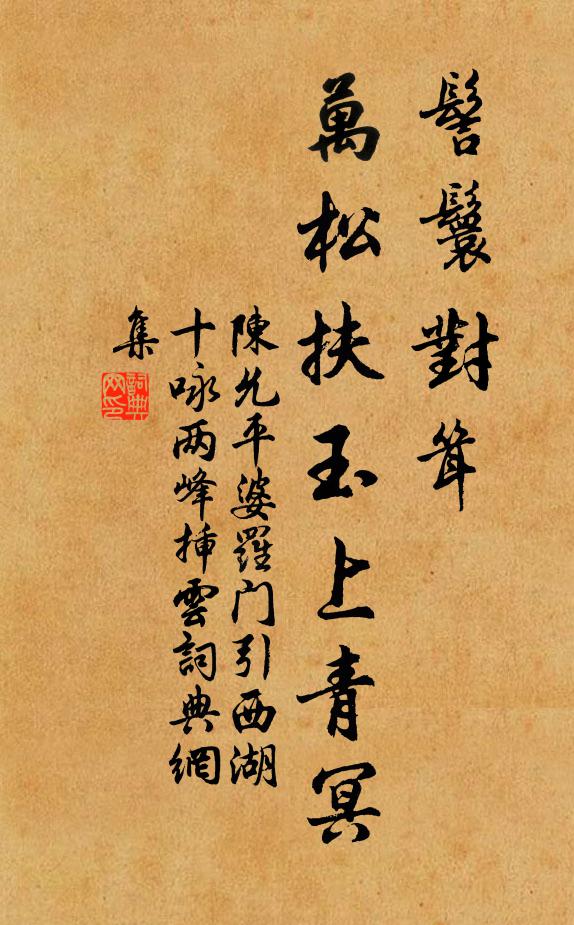 髻鬟對聳
萬松扶玉上青冥
陳允平婆羅门引西湖
十咏两峰揷雲詞典網
集
詞典网印